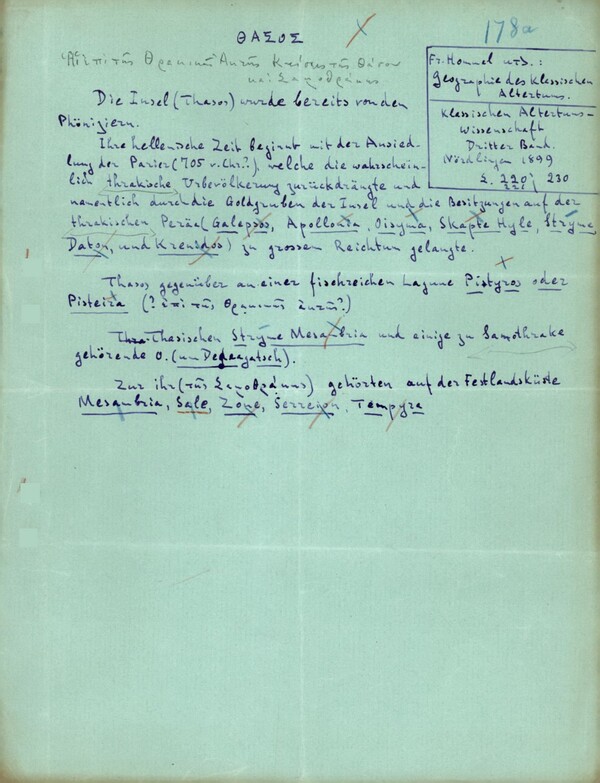 ΘΑΣΟΣ
178a
Αἱ ἐπὶ τῆς Θρακικῆς Ἀκτῆς Κτίσεις τῆς Θάσου
καὶ Σαμοθράκης
Fr. Hommel u.s.:
Geographie des Klassischen
Altertums.
Klassischen Altertums-
Wissenschaft
Dritter Band.
Nördlingen 1899
Σ. 220, 230
221
Die Insel (Thasos) wurde bereits von den
Phöniziern.
Ihre hellenische Zeit beginnt mit der Ansied-
lung der Parier (705 v. Chr.?), welche die wahrschein-
lich thrakische Urbevölkerung zurückdrängte und
namentlich durch die Goldgruben der Insel und die Besitzungen auf der
thrakischen Peräa (Galepsos, Apollonia, Oisyma, Skapte Hyle, Stryme,
Daton, und Krenidos) zu grossen Reichtum gelangte.
Thasos gegenüber an einer fischreichen Lagune Pistyros oder
Pisteira (? ἐπὶ τῆς Θρακικῆς ἀκτῆς?)
Thasischen Stryme Mesambria und einige zu Samothrake
gehörende O. (um Dedeagatsch).
Zur ihr (τῆς Σαμοθράκης) gehörten auf der Festlandsküste
Mesambria, Sale, Zone, Serreion, Tempyra